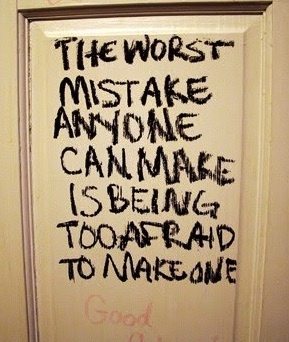 THE WORST
MISTAKE
ANYONE
CAN MAKE
IS BEING
TOO AFRAID
TO MAKE ONE
Good